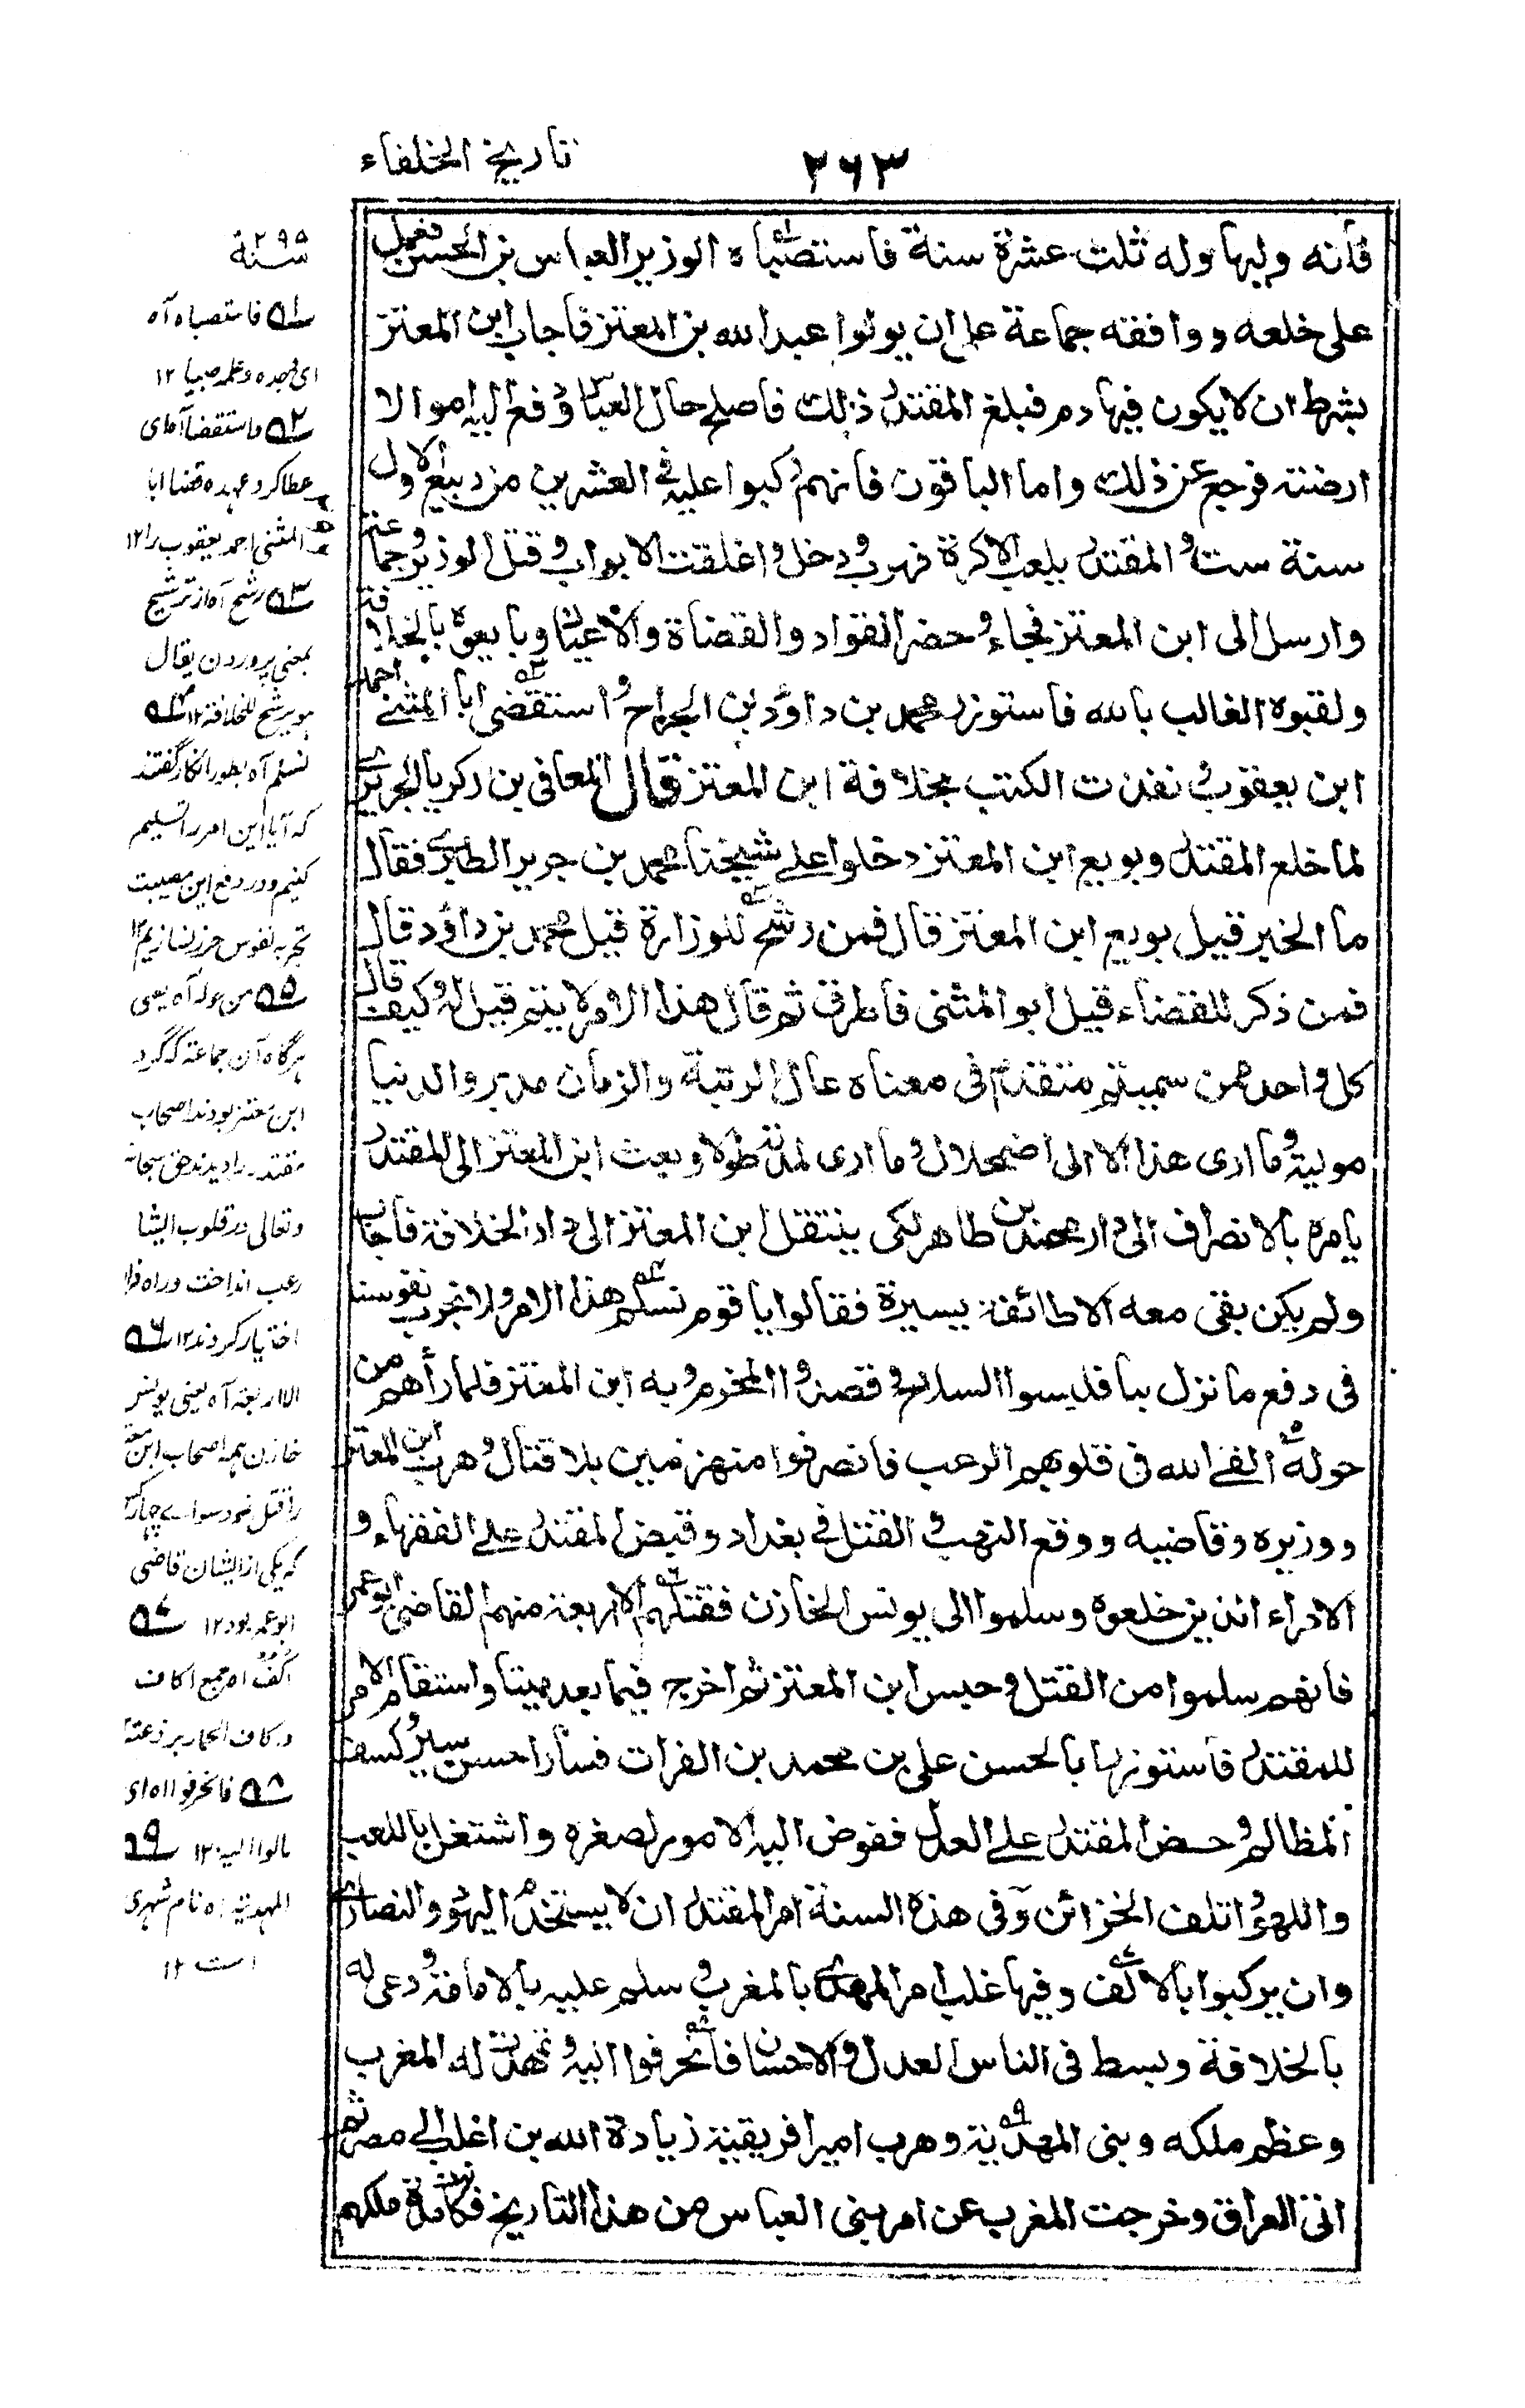 تاريخ الخلفاء
٢٦٣
فأنه وليها وله ثلث عشرة سنة فاستصباه الوزير العباس بن الحسن فعمل
على خلعه ووافقه جماعة على ان يولوا عبد الله بن المعتز فاجاب ابن المعتز
بشرط ان لا يكون فيها دم فبلغ المقتدر ذلك فاصلح حال العباس ودفع اليه اموالا
ارضته فرجع عن ذلك واما الباقون فانهم ركبوا عليه فى العشرين من ربيع الاول
سنة ست والمقتدر يلعب الاكرة فهرب ودخل واغلقت الابواب وقتل الوزير وجماعته
وارسل الى ابن المعتز فجاء وحضر القواد والقضاة والاعيان وبايعوه بالخلافة
ولقبوه الغالب بالله فاستوزر محمد بن داؤد بن الجراح واستقضى ابا المثنى احمد
ابن يعقوب ونفذت الكتب بخلافة ابن المعتز قال المعافى بن زكريا الجريرى
لما خلع المقتدر وبويع ابن المعتز دخلوا على شيخنا محمد بن جرير الطبرى فقال
ما الخبر قيل بويع ابن المعتز قال فمن رشح للوزارة قيل محمد بن داؤد قال
فمن ذكر للقضاء قيل ابو المثنى فاطرق ثم قال هذا الامر لا يتم قيل له وكيف قال
كل واحد ممن سميتم متقدم فى معناه عالى الرتبة والزمان مدبر والدنيا
مولية وما ارى هذا الا الى اضمحلال وما ارى لمدته طولا وبعث ابن المعتز الى المقتدر
يامره بالانصراف الى دار محمد بن طاهر لكى ينتقل ابن المعتز الى دار الخلافة فاجاب
ولم يكن بقى معه الا طائفة يسيرة فقالوا يا قوم نسلم هذا الامر ولا نجرب نفوسنا
فى دفع ما نزل بنا فلبسوا السلاح وقصدوا المخرم وبه ابن المعتز فلما رأهم من
حوله القى الله فى قلوبهم الرعب فانصرفوا منهزمين بلا قتال وهرب ابن المعتز
ووزيره وقاضيه ووقع النهب والقتل فى بغداد وقبض المقتدر على الفقهاء و
الامراء الذين خلعوه وسلموا الى يونس الخازن فقتلهم الا اربعة منهم القاضى ابو عمر
فانهم سلموا من القتل وحبس ابن المعتز ثم اخرج فيما بعد ميتا واستقام الامر
للمقتدر فاستوزر ابا الحسن على بن محمد بن الفرات فسار احسن سير وكشف
المظالم وحض المقتدر على العدل ففوض اليه الامور لصغره واشتغل باللعب
واللهو واتلف الخزائن وفى هذه السنة امر المقتدر ان لا يستخدم اليهود والنصارى
وان يركبوا بالاكف وفيها غلب امر المهدى بالمغرب وسلم عليه بالامامة ودعى له
بالخلافة وبسط فى الناس العدل والاحسان فانحرفوا اليه وتمهدت له المغرب
وعظم ملكه وبنى المهدية وهرب امير افريقية زيادة الله بن اغلب الى مصر ثم
اتى العراق وخرجت المغرب عن امر بنى العباس من هذا التاريخ فكانت مدة ملكهم
٢٩٥
سنة
٥١ فاستصباه آه
اى وجده وعلمه صبيا ١٢
٥٢ واستقضا آه اى
عطا كرد عهده قضا ابا
المثنى احمد يعقوب را ١٢
٥٣ رشح آه از ترشيح
بمعنى پروردن يقال
هو يرشح للخلافة ١٢ ٥٤
نسلم آه بطور انكار گفتند
كه آيا اين امر را تسليم
كنيم و در دفع اين مصيبت
تجربه نفوس خود نسازيم ١٢
٥٥ من حوله آه يعنى
هرگاه آن جماعة كه گرد
ابن معتز بودند اصحاب
مقتدر را ديدند حق سبحانه
وتعالى در قلوب ايشا
رعب انداخت و راه فرار
اختيار كردند ١٢ ٥٦
الا اربعة آه يعنى يونس
خازن همه اصحاب ابن معتز
را قتل نمود سواے چهار كس
كه يكى از ايشان قاضى
ابو عمر بود ١٢ ٥٧
اكف آه جمع اكاف
و كاف الحمار برذعته
٥٨ فانحرفوا آه اى
مالوا اليه ١٢ ٥٩
المهدية آه نام شهرى
است ١٢